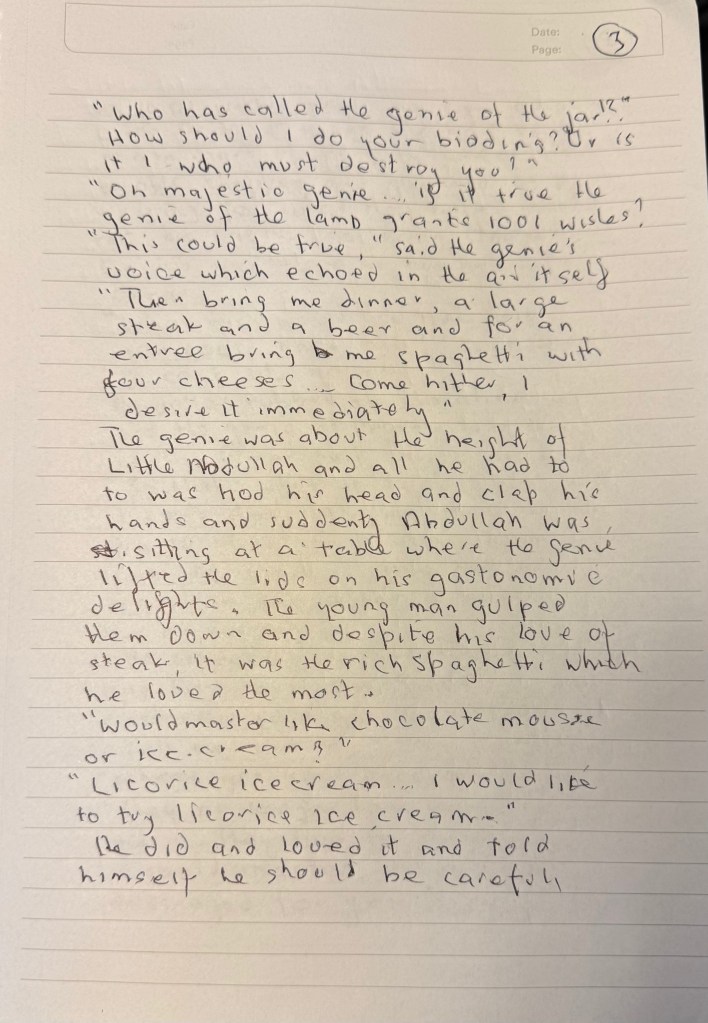 Date:
Page:
3
"Who has called the genie of the jar!?"
How should I do your bidding? Or is
it I who must destroy you?"
"Oh majestic genie.... is it true the
genie of the lamp grants 1001 wishes?
"This could be true," said the genie's
voice which echoed in the air itself
"Then bring me dinner, a large
steak and a beer and for an
entree bring me spaghetti with
four cheeses.... Come hither, I
desire it immediately"
The genie was about the height of
Little Abdullah and all he had to
to was nod his head and clap his
hands and suddenty Abdullah was,
sitting at a table where the genie
lifted the lids on his gastonomic
delights. The young man gulped
them down and despite his love of
steak, it was the rich spaghetti which
he loved the most.
"Would master like chocolate mousse
or ice-cream?"
"Licorice icecream.... I would like
to try licorice ice cream."
He did and loved it and told
himself he should be careful,